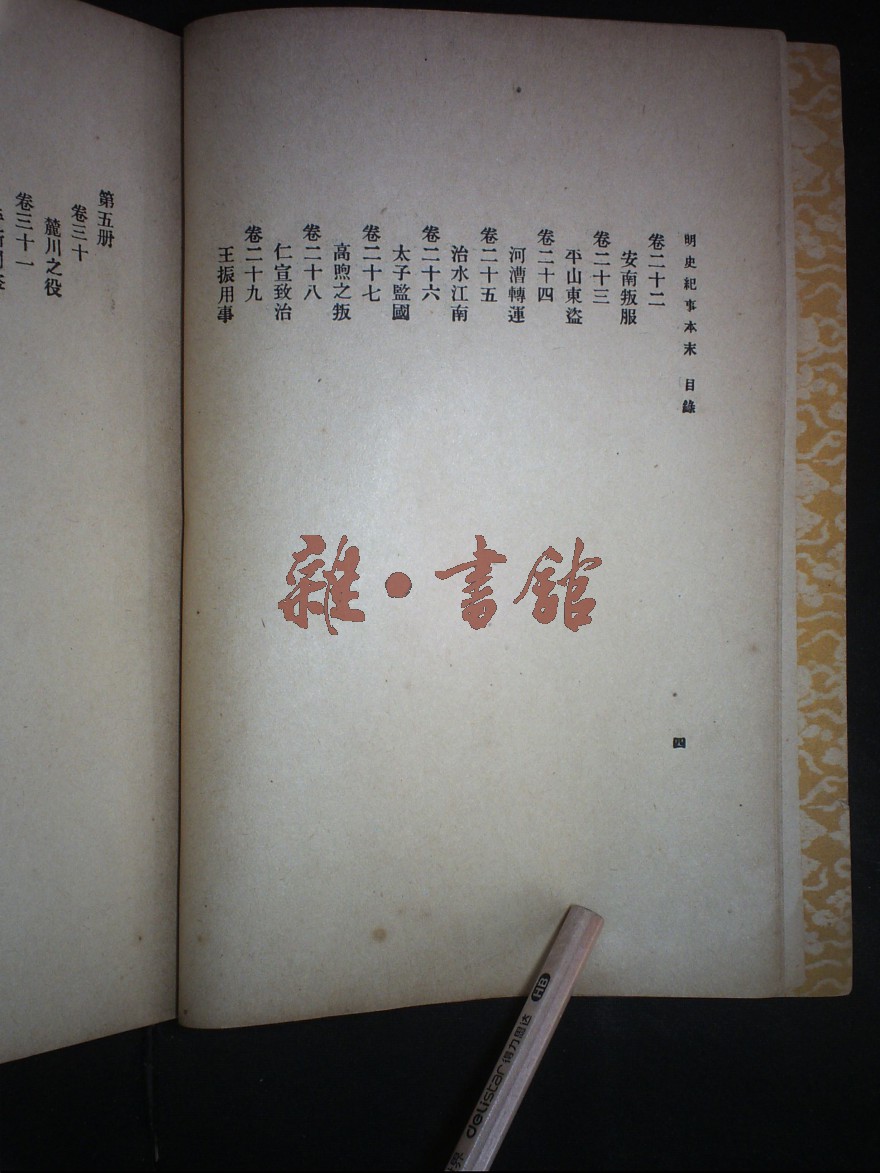 明史紀事本末 目錄
卷二十二
安南叛服
卷二十三
平山東盜
卷二十四
河漕轉運
卷二十五
治水江南
卷二十六
太子監國
卷二十七
高煦之叛
卷二十八
仁宣致治
卷二十九
王振用事
四
第五册
卷三十
麓川之役
卷三十一
雜·書館
HB
得力思达
delistar